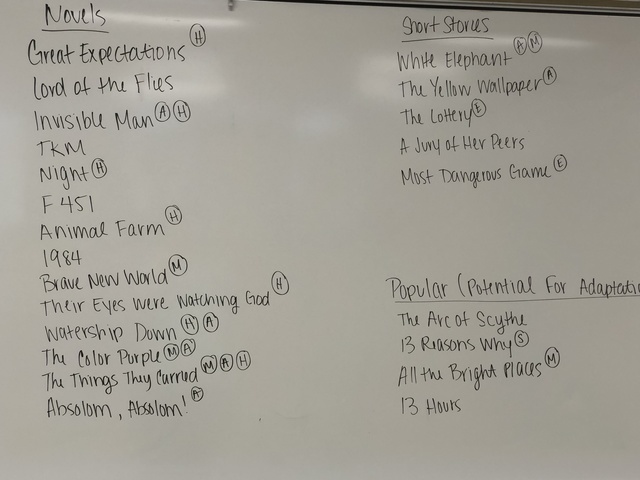 Novels
Great Expectations H
Lord of the Flies
Invisible Man A H
TKM
Night H
F 451
Animal Farm H
1984
Brave New World M
Their Eyes Were Watching God H
Watership Down H A
The Color Purple M A
The Things They Carried M A H
Absolom, Absolom! A
Short Stories
White Elephant A M
The Yellow Wallpaper A
The Lottery E
A Jury of Her Peers
Most Dangerous Game E
Popular (Potential For Adaptatio
The Arc of Scythe
13 Reasons Why S
All the Bright Places M
13 Hours